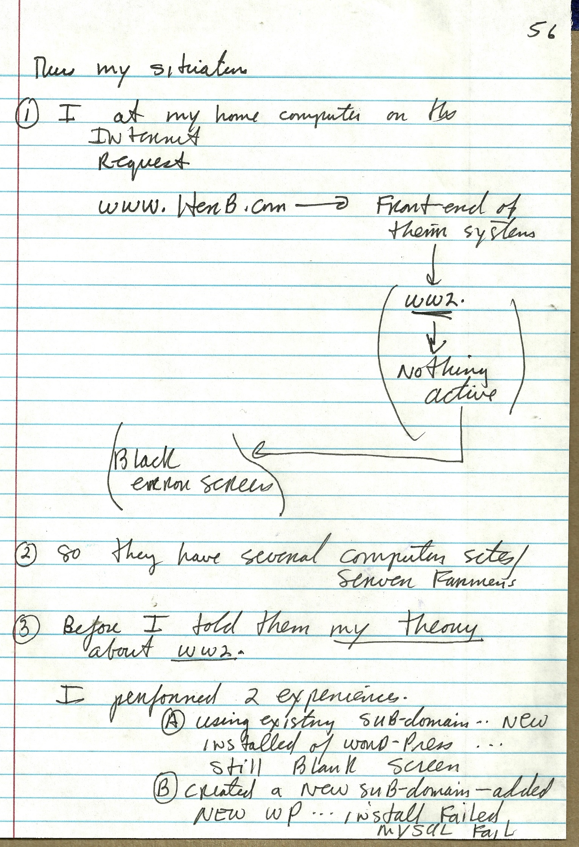 56
Thus my situation
① I at my home computer on the
Internet
Request
www.HenB.com → Front-end of
their systems
ww2.
Nothing
active
Black
error screen
② so they have several computer sites/
Server Farmers
③ Before I told them my theory
about ww2.
I performed 2 experiences.
Ⓐ using existing sub-domain .. New
installed of word-Press ...
still Blank screen
Ⓑ created a new sub-domain - added
NEW WP ... install Failed
mysql Fail